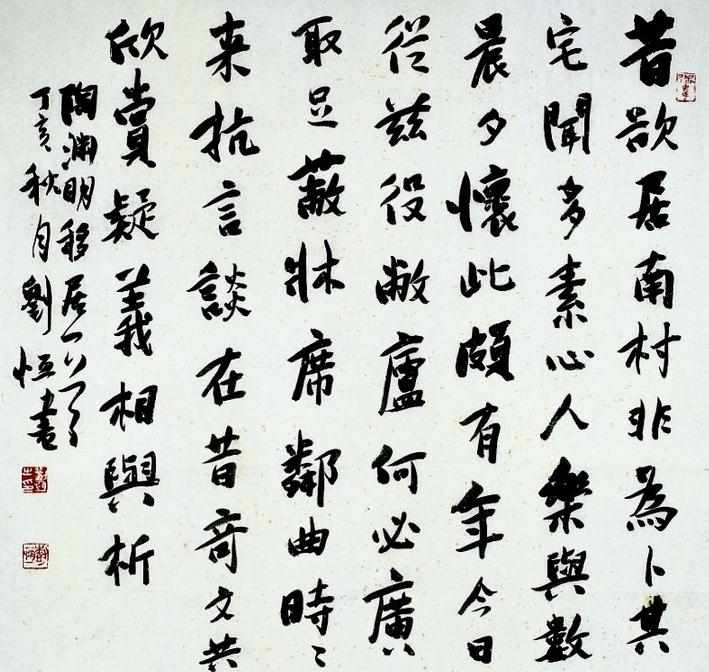 昔欲居南村非為卜其
宅聞多素心人樂與數
晨夕懷此頗有年今日
從茲役敝廬何必廣
取足蔽牀席鄰曲時〻
来抗言談在昔奇文共
欣賞疑義相與析
陶淵明移居
丁亥秋月劉恒書